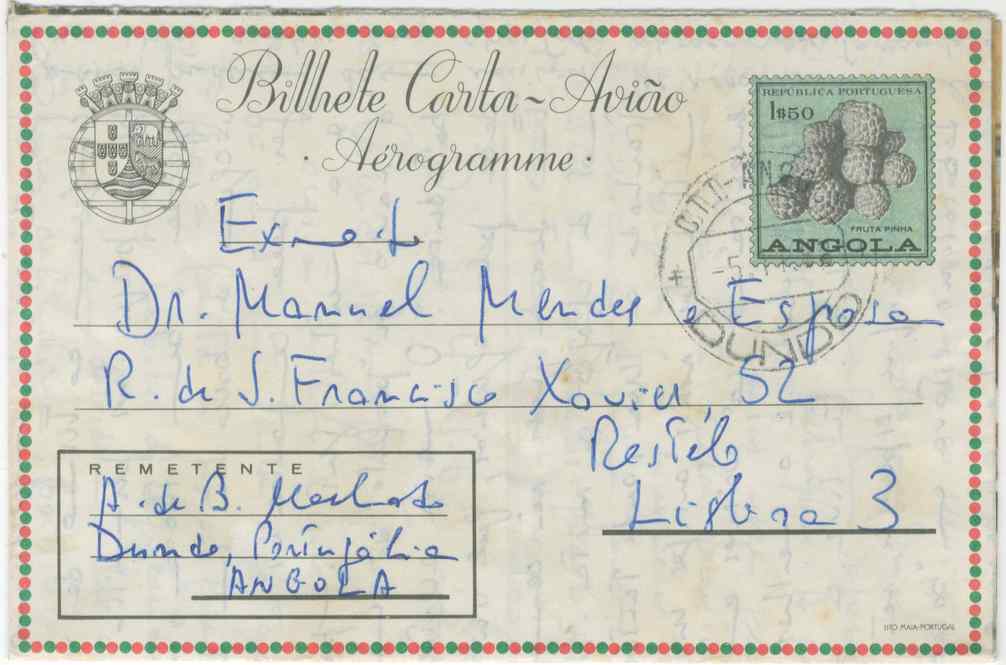 Bilhete Carta-Avião
· Aérogramme ·
REPÚBLICA PORTUGUESA
1$50
FRUTA PINHA
ANGOLA
DUNDO
Dr. Manuel Mendes e Esposa
R. de S. Francisco Xavier, 52
Restelo
Lisboa 3
REMETENTE
A. de B. Machado
Dundo, Portugália
ANGOLA
LITO MAIA-PORTUGAL